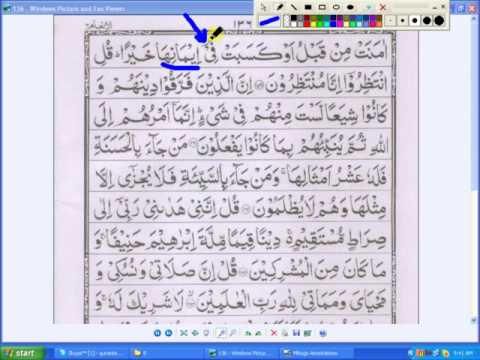 136 - Windows Picture and Fax Viewer
الانعام
١٣٦
اٰمَنَتْ مِنْ قَبْلُ اَوْ كَسَبَتْ فِیْۤ اِیْمَانِهَا خَیْرًا ؕ قُلِ
انْتَظِرُوْۤا اِنَّا مُنْتَظِرُوْنَ اِنَّ الَّذِیْنَ فَرَّقُوْا دِیْنَهُمْ وَ
كَانُوْا شِیَعًا لَّسْتَ مِنْهُمْ فِیْ شَیْءٍ ؕ اِنَّمَاۤ اَمْرُهُمْ اِلَی
اللّٰهِ ثُمَّ یُنَبِّئُهُمْ بِمَا كَانُوْا یَفْعَلُوْنَ مَنْ جَآءَ بِالْحَسَنَةِ
فَلَهٗ عَشْرُ اَمْثَالِهَا ۚ وَمَنْ جَآءَ بِالسَّیِّئَةِ فَلَا یُجْزٰۤی اِلَّا
مِثْلَهَا وَهُمْ لَا یُظْلَمُوْنَ قُلْ اِنَّنِیْ هَدٰىنِیْ رَبِّیْۤ اِلٰی
صِرَاطٍ مُّسْتَقِیْمٍ ۚ دِیْنًا قِیَمًا مِّلَّةَ اِبْرٰهِیْمَ حَنِیْفًا ۚ وَ
مَا كَانَ مِنَ الْمُشْرِكِیْنَ قُلْ اِنَّ صَلَاتِیْ وَنُسُكِیْ وَ
مَحْیَایَ وَمَمَاتِیْ لِلّٰهِ رَبِّ الْعٰلَمِیْنَ لَا شَرِیْكَ لَهٗ ۚ وَ
start
136 - Windows Pictur...
9:41 AM